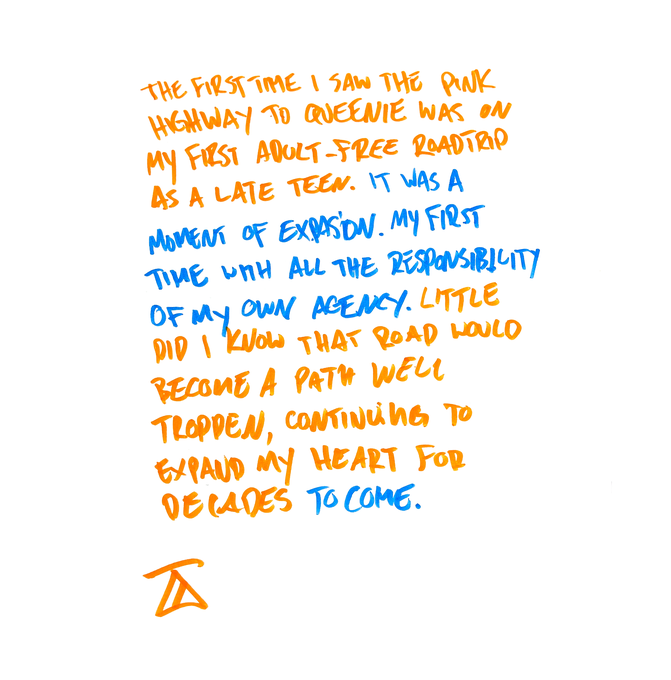 THE FIRST TIME I SAW THE PINK
HIGHWAY TO QUEENIE WAS ON
MY FIRST ADULT-FREE ROADTRIP
AS A LATE TEEN. IT WAS A
MOMENT OF EXPASION. MY FIRST
TIME WITH ALL THE RESPONSIBILITY
OF MY OWN AGENCY. LITTLE
DID I KNOW THAT ROAD WOULD
BECOME A PATH WELL
TRODDEN, CONTINUING TO
EXPAND MY HEART FOR
DECADES TO COME.